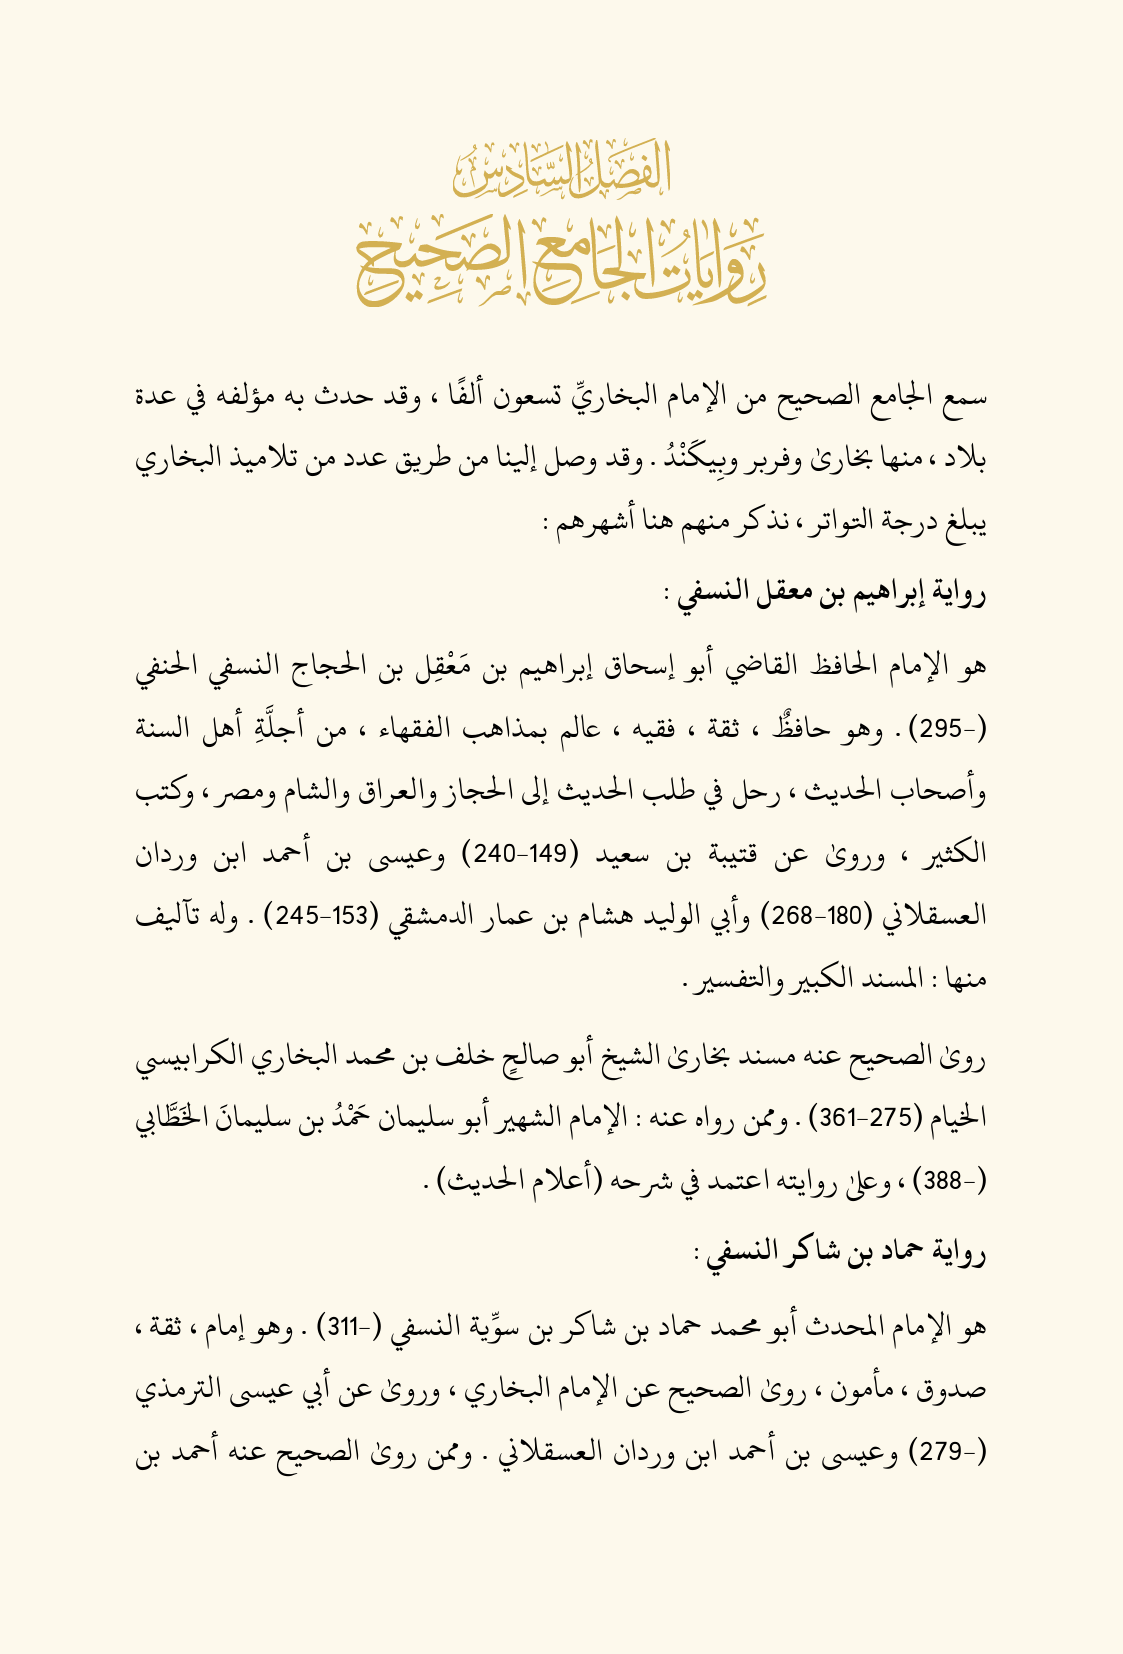 الفَصْلُ السَّادِسُ
رِوَايَاتُ الجَامِعِ الصَّحِيحِ
سمع الجامع الصحيح من الإمام البخاريِّ تسعون ألفًا ، وقد حدث به مؤلفه في عدة
بلاد ، منها بخارىٰ وفربر وبِيكَنْدُ . وقد وصل إلينا من طريق عدد من تلاميذ البخاري
يبلغ درجة التواتر ، نذكر منهم هنا أشهرهم :
رواية إبراهيم بن معقل النسفي :
هو الإمام الحافظ القاضي أبو إسحاق إبراهيم بن مَعْقِل بن الحجاج النسفي الحنفي
(-295) . وهو حافظٌ ، ثقة ، فقيه ، عالم بمذاهب الفقهاء ، من أجلَّةِ أهل السنة
وأصحاب الحديث ، رحل في طلب الحديث إلى الحجاز والعراق والشام ومصر ، وكتب
الكثير ، وروىٰ عن قتيبة بن سعيد (149-240) وعيسى بن أحمد ابن وردان
العسقلاني (180-268) وأبي الوليد هشام بن عمار الدمشقي (153-245) . وله تآليف
منها : المسند الكبير والتفسير .
روىٰ الصحيح عنه مسند بخارىٰ الشيخ أبو صالحٍ خلف بن محمد البخاري الكرابيسي
الخيام (275-361) . وممن رواه عنه : الإمام الشهير أبو سليمان حَمْدُ بن سليمانَ الخَطَّابي
(-388) ، وعلىٰ روايته اعتمد في شرحه (أعلام الحديث) .
رواية حماد بن شاكر النسفي :
هو الإمام المحدث أبو محمد حماد بن شاكر بن سوِّية النسفي (-311) . وهو إمام ، ثقة ،
صدوق ، مأمون ، روىٰ الصحيح عن الإمام البخاري ، وروىٰ عن أبي عيسى الترمذي
(-279) وعيسى بن أحمد ابن وردان العسقلاني . وممن روىٰ الصحيح عنه أحمد بن